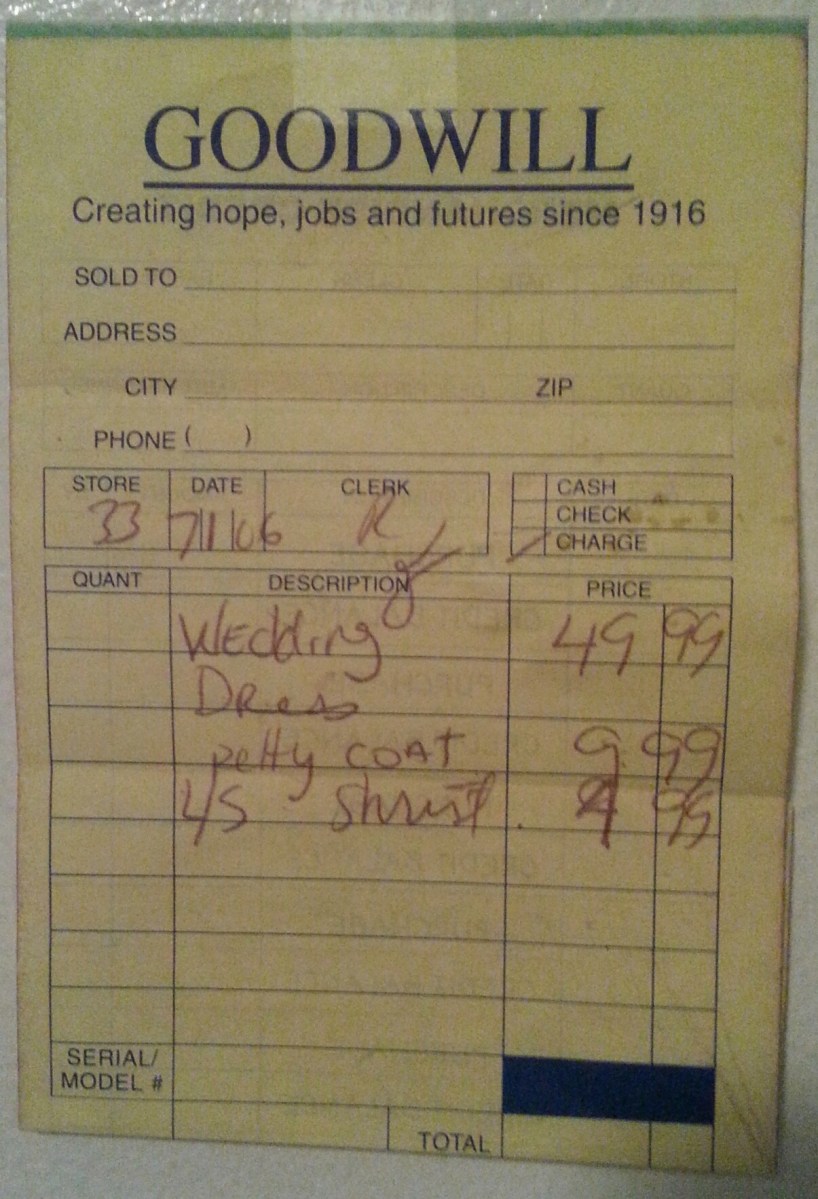 GOODWILL
Creating hope, jobs and futures since 1916
SOLD TO
ADDRESS
CITY ZIP
PHONE ( )
STORE DATE CLERK CASH
33 7/1/06 R CHECK
CHARGE
QUANT DESCRIPTION PRICE
Wedding 49 99
Dress
petty COAT 9 99
L/S 99
SERIAL/
MODEL #
TOTAL